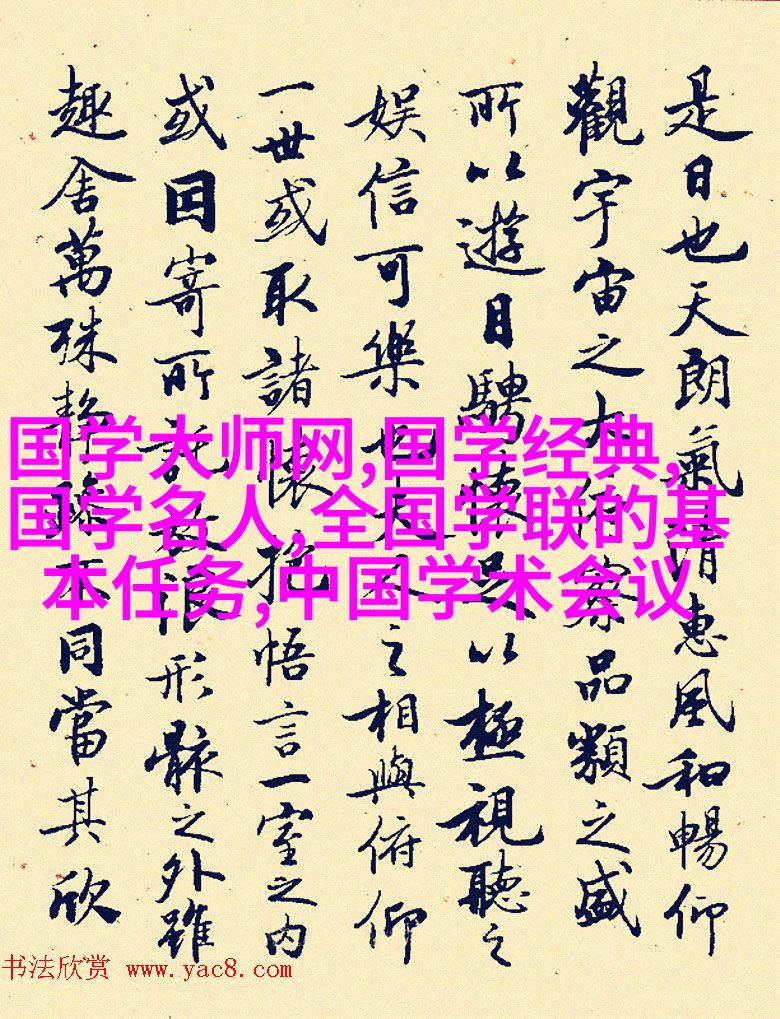 是日也天朗氣清惠風和暢仰
觀宇宙之大俯察品類之盛
所以遊目騁懷足以極視聽之
娛信可樂也夫人之相與俯仰
一世或取諸懷抱悟言一室之內
或因寄所託放浪形骸之外雖
趣舍萬殊靜躁不同當其欣
国学大师网,国学经典,
国学名人,全国学联的基
本任务,中国学术会议
书法欣赏 www.yac8.com